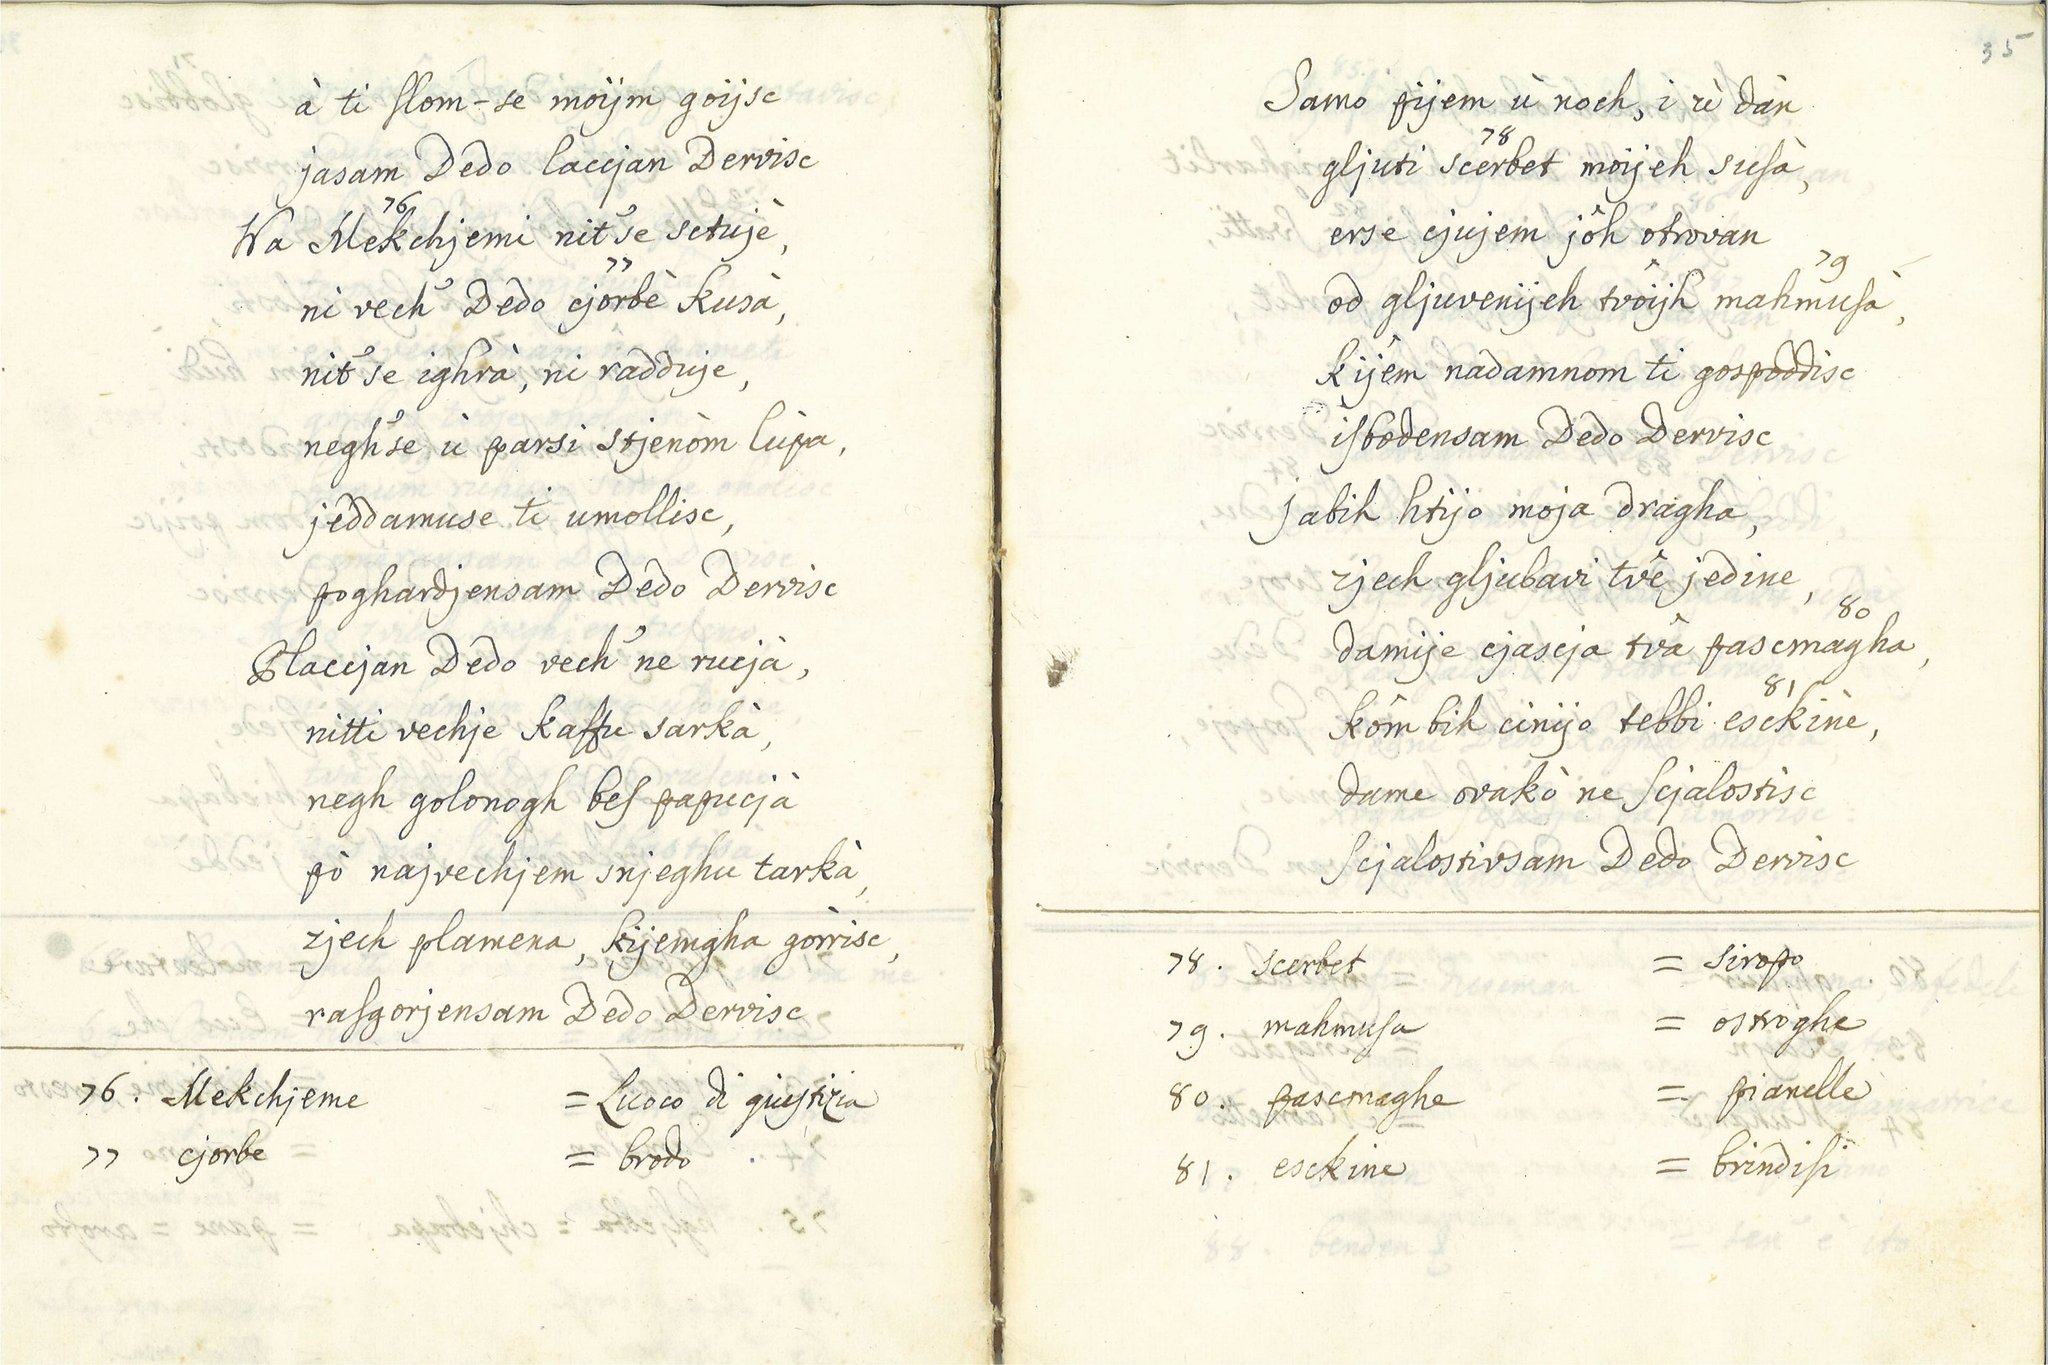 à ti slom-se moijm goijsc
jasam Dedo lacijan Dervisc
Na Mek76chjemi nit'se sctujè,
ni vech' Dedo cjor77bè kusà,
nit'se ighrà, ni radduje,
negh'se ù parsi stjenòm lùpa,
jeddamuse ti umollisc,
poghardjensam Dedo Dervisc
Placijan Dedo vech' ne rucjà,
nitti vechje kaffu sarkà,
negh golonogh bes papucjà
pò najvechjem snjeghu tarkà,
zjech plamena, kijemgha gòrrisc,
rasgorjensam Dedo Dervisc
76. Mekchjeme = Luoco di giustizia
77 cjorbe = brodo
35
Samo pijem ù noch, i ù dàn
gljuti scer78bet moijeh susà,
erse cjujem jôh otrovan
od gljuvenijeh tvôijh mahmu79sà,
kijêm nadamnom ti gospoddisc
isbodensam Dedo Dervisc
jabih htijo moja dragha,
zjech gljubavi tvê jedine,
damije cjascja tvà pascmagha80,
kôm bih cinijo tebbi esc81kine,
dame ovakò ne scjalostisc
scjalostivsam Dedo Dervisc
78. scerbet = siropo
79. mahmusa = ostroghe
80. pascmaghe = pianelle
81. esckine = brindisi